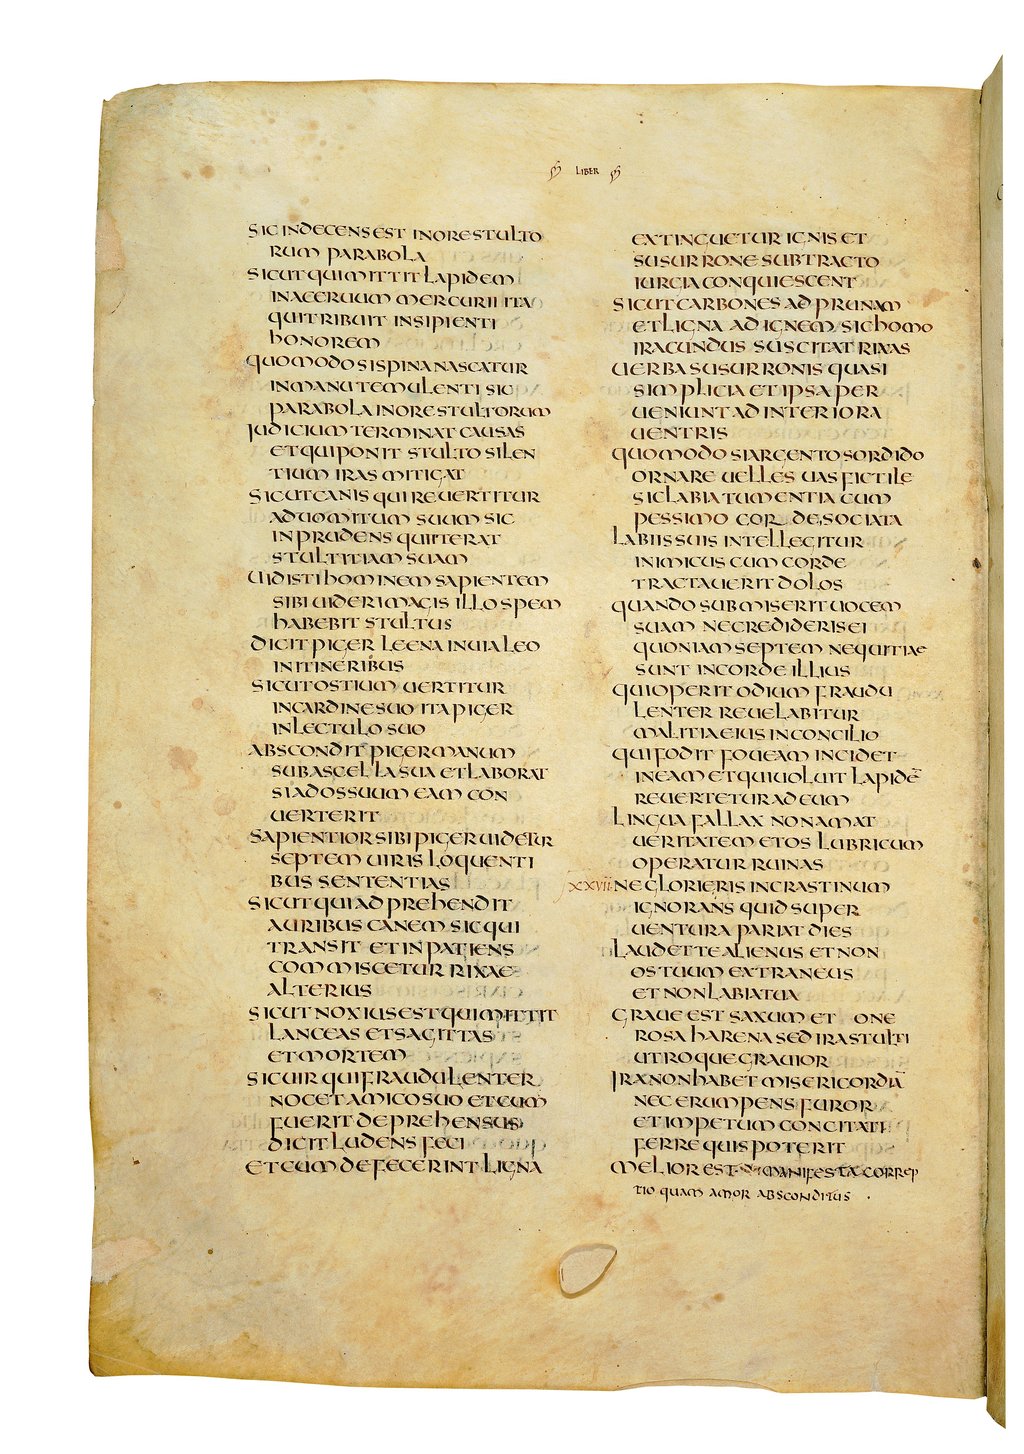 LIBER
SIC INDECENS EST IN ORE STULTO
RUM PARABOLA
SICUT QUI MITTIT LAPIDEM
IN ACERUUM MERCURII ITA
QUI TRIBUIT INSIPIENTI
HONOREM
QUOMODO SI SPINA NASCATUR
IN MANU TEMULENTI SIC
PARABOLA IN ORE STULTORUM
IUDICIUM TERMINAT CAUSAS
ET QUI PONIT STULTO SILEN
TIUM IRAS MITIGAT
SICUT CANIS QUI REUERTITUR
AD UOMITUM SUUM SIC
INPRUDENS QUI ITERAT
STULTITIAM SUAM
UIDISTI HOMINEM SAPIENTEM
SIBI UIDERI MAGIS ILLO SPEM
HABEBIT STULTUS
DICIT PIGER LEENA IN UIA LEO
IN ITINERIBUS
SICUT OSTIUM UERTITUR
IN CARDINE SUO ITA PIGER
IN LECTULO SUO
ABSCONDIT PIGER MANUM
SUB ASCELLA SUA ET LABORAT
SI AD OS SUUM EAM CON
UERTERIT
SAPIENTIOR SIBI PIGER UIDETUR
SEPTEM UIRIS LOQUENTI
BUS SENTENTIAS
SICUT QUI ADPREHENDIT
AURIBUS CANEM SIC QUI
TRANSIT ET INPATIENS
COMMISCETUR RIXAE
ALTERIUS
SICUT NOXIUS EST QUI MITTIT
LANCEAS ET SAGITTAS
ET MORTEM
SIC UIR QUI FRAUDULENTER
NOCET AMICO SUO ET CUM
FUERIT DEPREHENSUS
DICIT LUDENS FECI
ET CUM DEFECERINT LIGNA
EXTINGUETUR IGNIS ET
SUSURRONE SUBTRACTO
IURGIA CONQUIESCENT
SICUT CARBONES AD PRUNAM
ET LIGNA AD IGNEM SIC HOMO
IRACUNDUS SUSCITAT RIXAS
UERBA SUSURRONIS QUASI
SIMPLICIA ET IPSA PER
UENIUNT AD INTERIORA
UENTRIS
QUOMODO SI ARGENTO SORDIDO
ORNARE UELLES UAS FICTILE
SIC LABIA TUMENTIA CUM
PESSIMO COR DE SOCIATA
LABIIS SUIS INTELLEGITUR
INIMICUS CUM CORDE
TRACTAUERIT DOLOS
QUANDO SUBMISERIT UOCEM
SUAM NE CREDIDERIS EI
QUONIAM SEPTEM NEQUITIAE
SUNT IN CORDE ILLIUS
QUI OPERIT ODIUM FRAUDU
LENTER REUELABITUR
MALITIA EIUS IN CONCILIO
QUI FODIT FOUEAM INCIDET
IN EAM ET QUI UOLUIT LAPIDĒ
REUERTETUR AD EUM
LINGUA FALLAX NON AMAT
UERITATEM ET OS LUBRICUM
OPERATUR RUINAS
XXVII NE GLORIERIS IN CRASTINUM
IGNORANS QUID SUPER
UENTURA PARIAT DIES
LAUDET TE ALIENUS ET NON
OS TUUM EXTRANEUS
ET NON LABIA TUA
GRAUE EST SAXUM ET ONE
ROSA HARENA SED IRA STULTI
UTROQUE GRAUIOR
IRA NON HABET MISERICORDIĀ
NEC ERUMPENS FUROR
ET IMPETUM CONCITATI
FERRE QUIS POTERIT
MELIOR EST MANIFESTA CORREP
TIO QUAM AMOR ABSCONDITUS